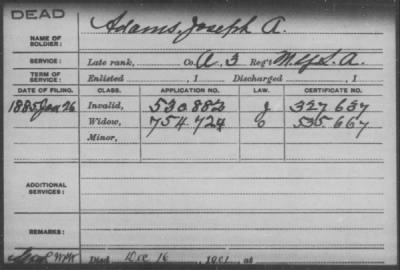 DEAD
NAME OF SOLDIER: Adams, Joseph A.
SERVICE: Late rank, Co. A, 3 Reg't M.Y.S.A.
TERM OF SERVICE: Enlisted , 1 Discharged , 1
DATE OF FILING. CLASS. APPLICATION NO. LAW. CERTIFICATE NO.
1885 Jan 26 Invalid, 530.882 327.637
Widow, 754.724 535.667
Minor,
ADDITIONAL SERVICES:
REMARKS:
Died Dec 16, 1901, at